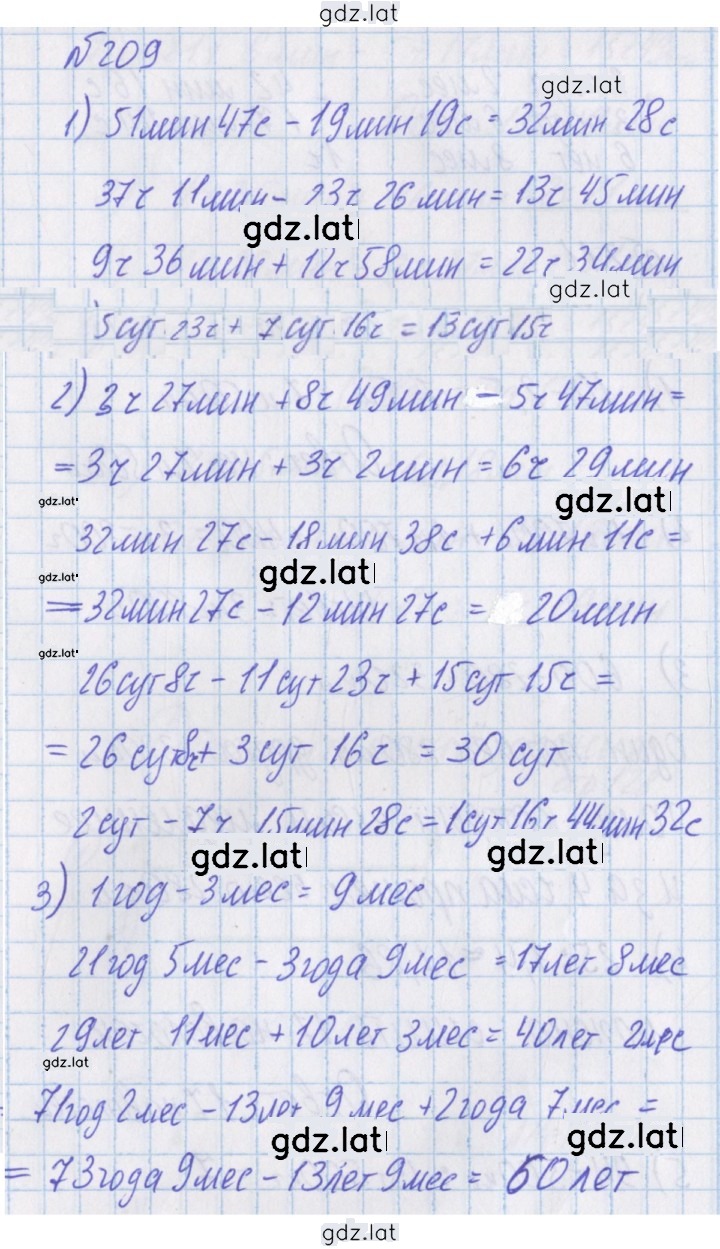 gdz.lat
№209
gdz.lat
1) 51мин 47с - 19мин 19с = 32мин 28с
37ч 11мин - 23ч 26мин = 13ч 45мин
gdz.lat
9ч 36мин + 12ч 58мин = 22ч 34мин
gdz.lat
5сут 23ч + 7сут 16ч = 13сут 15ч
2) 3ч 27мин + 8ч 49мин - 5ч 47мин =
= 3ч 27мин + 3ч 2мин = 6ч 29мин
gdz.lat
gdz.lat
32мин 27с - 18мин 38с + 6мин 11с =
gdz.lat
gdz.lat
= 32мин 27с - 12мин 27с = 20мин
gdz.lat
26сут 8ч - 11сут 23ч + 15сут 15ч =
= 26сут 8ч + 3сут 16ч = 30сут
2сут - 7ч 15мин 28с = 1сут 16ч 44мин 32с
gdz.lat
gdz.lat
3) 1год - 3мес = 9мес
21год 5мес - 3года 9мес = 17лет 8мес
29лет 11мес + 10лет 3мес = 40лет 2мес
gdz.lat
= 71год 2мес - 13лет 9мес + 2года 7мес =
gdz.lat
gdz.lat
= 73года 9мес - 13лет 9мес = 60лет
gdz.lat